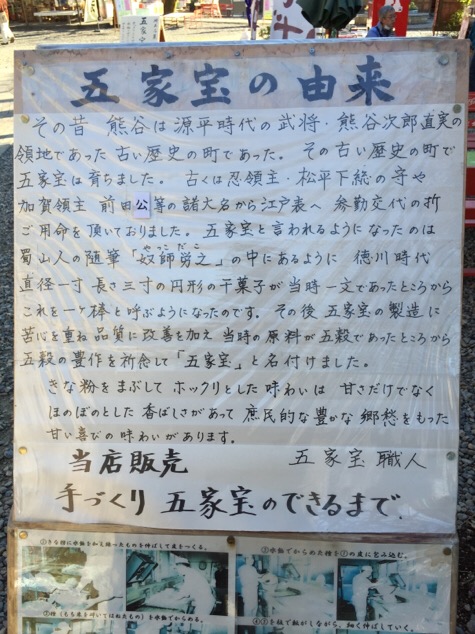 五家宝の由来
その昔 熊谷は源平時代の武将・熊谷次郎直実の
領地であった古い歴史の町であった。その古い歴史の町で
五家宝は育ちました。古くは忍領主・松平下総の守や
加賀領主 前田公等の諸大名から江戸表へ 参勤交代の折
ご用命を頂いておりました。五家宝と言われるようになったのは
蜀山人の随筆「奴師労之」の中にあるように 徳川時代
やっこだこ
直径一寸 長さ三寸の円形の干菓子が当時一文であったところから
これを一ヶ棒と呼ぶようになったのです。その後 五家宝の製造に
苦心を重ね品質に改善を加え 当時の原料が五穀であったところから
五穀の豊作を祈念して「五家宝」と名付けました。
きな粉をまぶして ホックリとした味わいは 甘さだけでなく
ほのぼのとした香ばしさがあって 庶民的な豊かな郷愁をもった
甘い喜びの味わいがあります。
当店販売
五家宝 職人
手づくり 五家宝のできるまで.
①きな粉に水飴を加え練ったものを伸ばして皮をつくる。
③水飴でからめた種を①の皮に包み込む。
②種(もち米を叩いてはねたもの)を水飴でからめる。
④③を板で転がしながら、細く伸ばしていく。